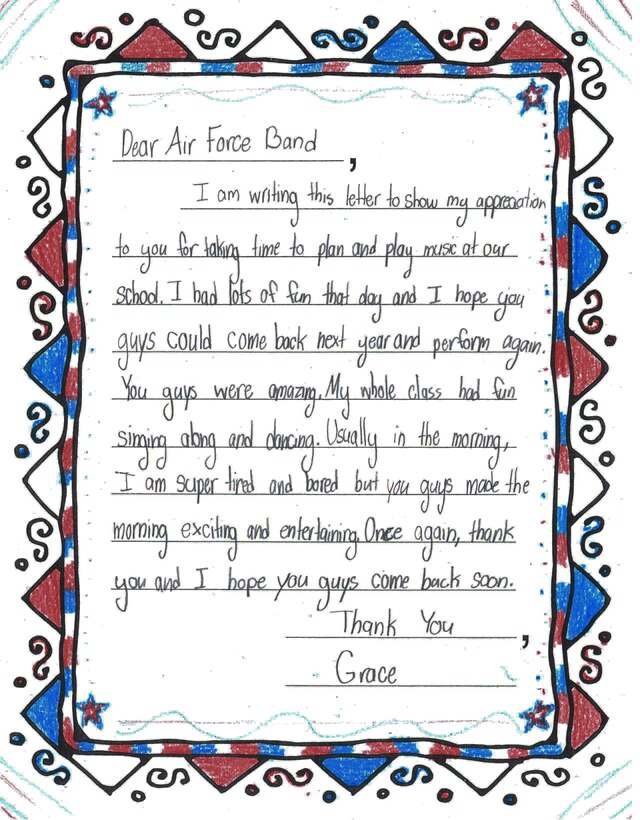 Dear Air Force Band,
I am writing this letter to show my appreciation
to you for taking time to plan and play music at our
school. I had lots of fun that day and I hope you
guys could come back next year and perform again.
You guys were amazing. My whole class had fun
singing along and dancing. Usually in the morning,
I am super tired and bored but you guys made the
morning exciting and entertaining. Once again, thank
you and I hope you guys come back soon.
Thank You,
Grace